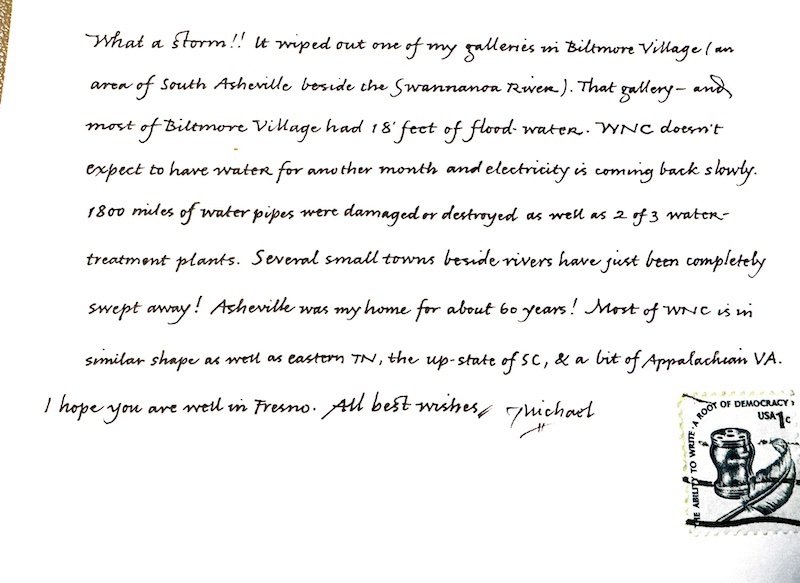 What a storm!! It wiped out one of my galleries in Biltmore Village (an
area of South Asheville beside the Swannanoa River). That gallery – and
most of Biltmore Village had 18' feet of flood-water. WNC doesn't
expect to have water for another month and electricity is coming back slowly.
1800 miles of water pipes were damaged or destroyed as well as 2 of 3 water-
treatment plants. Several small towns beside rivers have just been completely
swept away! Asheville was my home for about 60 years! Most of WNC is in
similar shape as well as eastern TN, the up-state of SC, & a bit of Appalachian VA.
I hope you are well in Fresno. All best wishes, Michael
THE ABILITY TO WRITE · A ROOT OF DEMOCRACY
USA 1c